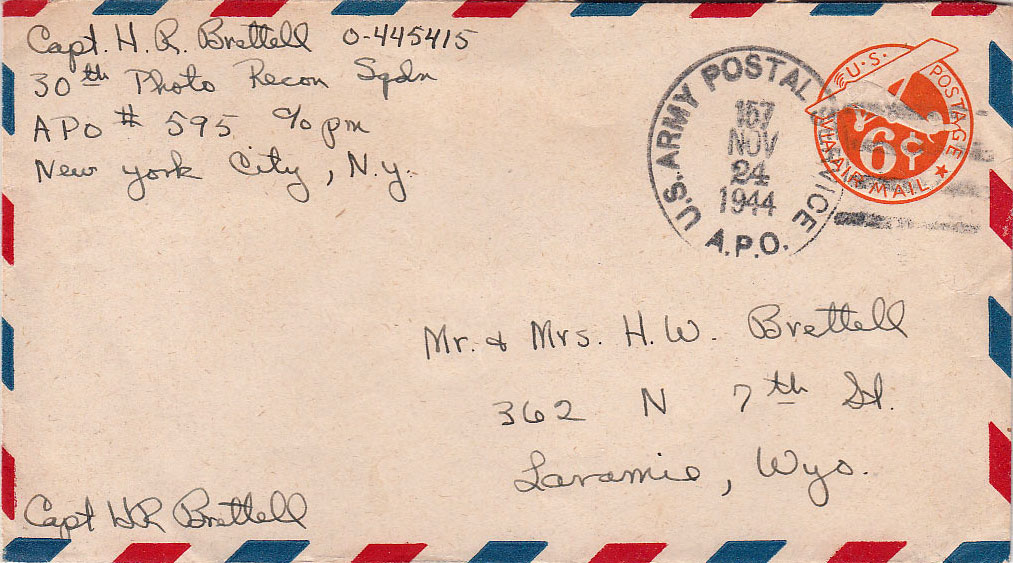 Capt. H. R. Brettell 0-445415
30th Photo Recon Sqdn
APO # 595 c/o pm
New York City, N.Y.
U.S. ARMY POSTAL SERVICE
157
NOV
24
1944
A.P.O.
U.S. POSTAGE
6¢
VIA AIR MAIL
Mr. & Mrs. H. W. Brettell
362 N 7th St.
Laramie, Wyo.
Capt HR Brettell